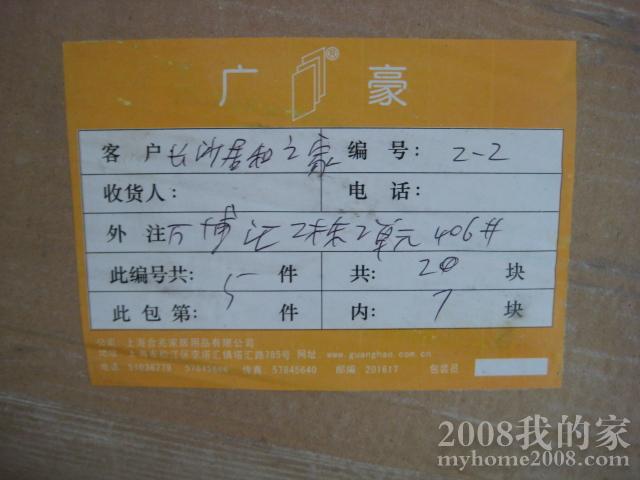 广 ® 豪
客户 长沙居和之家 编号: 2-2
收货人: 电话:
外注 万博汇2栋2单元406#
此编号共: 5 件 共: 20 块
此包第: 5 件 内: 7 块
公司 上海合兆家居用品有限公司
地址 上海市松江区李塔汇镇塔汇路785号 网址 www.guanghao.com.cn
电话 51036778 57845666 传真 57845640 邮编 201617 包装员
2008我的家
myhome2008.com